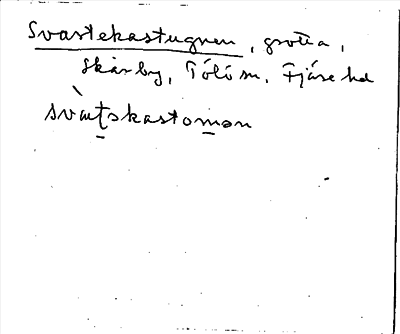 Svartekastugnen, grotta,
Skårby, Tölö sn, Fjäre hd
svàʈskastomən